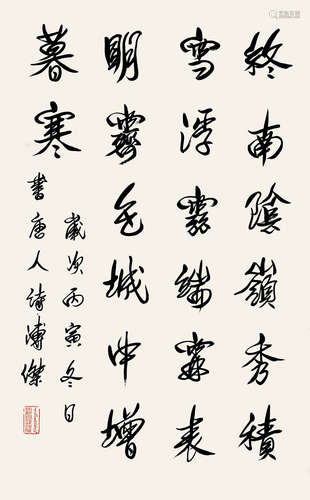 終南陰嶺秀積
雪浮雲端表
明霽色城中增
暮寒
歲次丙寅冬日
書唐人詩溥傑